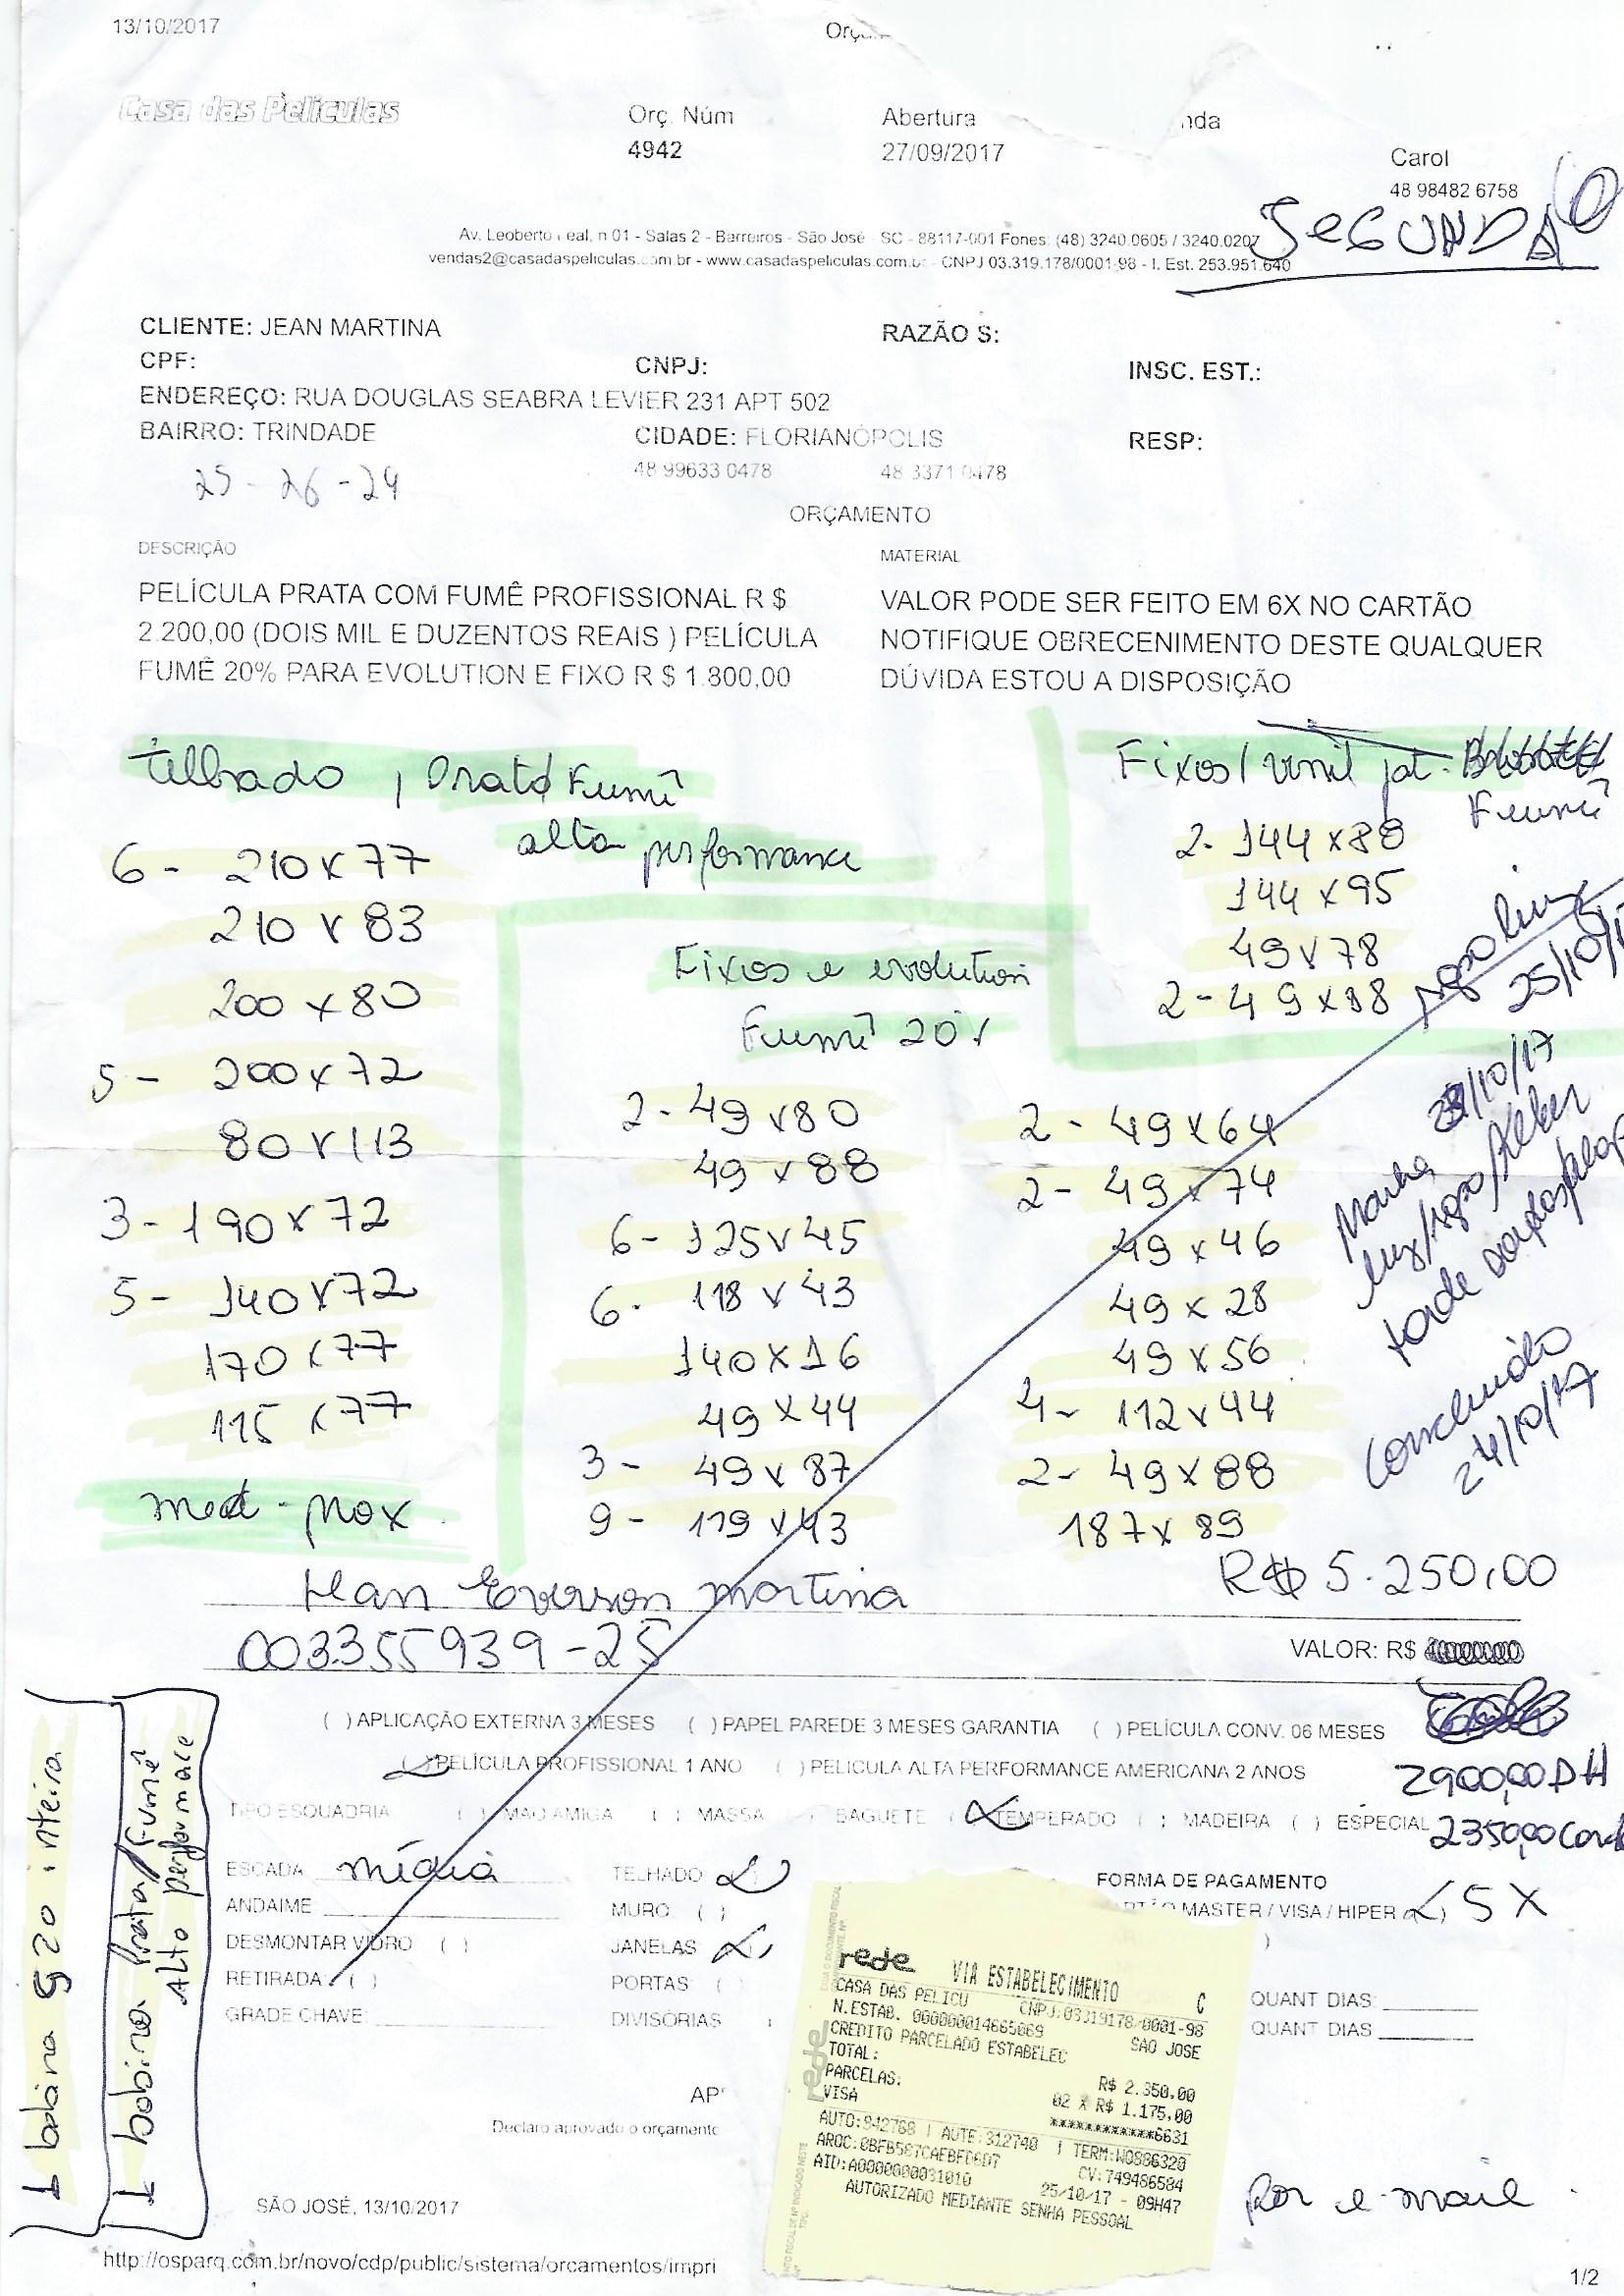 13/10/2017
Casa das Películas
Orç. Núm
4942
Abertura
27/09/2017
nda
Carol
48 98482 6758
SEGUNDA
Av. Leoberto Leal, n 01 - Salas 2 - Barreiros - São José - SC - 88117-001 Fones: (48) 3240.0605 / 3240.0207
vendas2@casadaspeliculas.com.br - www.casadaspeliculas.com.br - CNPJ 03.319.178/0001-98 - I. Est. 253.951.640
CLIENTE: JEAN MARTINA
RAZÃO S:
CPF:
CNPJ:
INSC. EST.:
ENDEREÇO: RUA DOUGLAS SEABRA LEVIER 231 APT 502
BAIRRO: TRINDADE
CIDADE: FLORIANÓPOLIS
RESP:
48 99633 0478
48 3371 0478
25 - 26 - 24
ORÇAMENTO
DESCRIÇÃO
PELÍCULA PRATA COM FUMÊ PROFISSIONAL R $
2.200,00 (DOIS MIL E DUZENTOS REAIS ) PELÍCULA
FUMÊ 20% PARA EVOLUTION E FIXO R $ 1.800,00
MATERIAL
VALOR PODE SER FEITO EM 6X NO CARTÃO
NOTIFIQUE OBRECENIMENTO DESTE QUALQUER
DÚVIDA ESTOU A DISPOSIÇÃO
telhado , Prata/Fumê
alta performance
6 - 210 x 77
210 x 83
200 x 80
5 - 200 x 72
80 x 113
3 - 190 x 72
5 - 140 x 72
170 x 77
115 x 77
med - prox
Fixos e evolution
Fumê 20%
2 - 49 x 80
49 x 88
6 - 125 x 45
6 - 118 x 43
140 x 16
49 x 44
3 - 49 x 87
9 - 119 x 43
Fixos / vinil jat.
Fumê
2 - 144 x 88
144 x 95
49 x 78
2 - 49 x 88
2 - 49 x 64
2 - 49 x 74
49 x 46
49 x 28
49 x 56
4 - 112 x 44
2 - 49 x 88
187 x 89
25/10/17
Manhã
tarde
Concluído
24/10/17
R$ 5.250,00
Jean Everson Martina
003355939-25
VALOR: R$
( ) APLICAÇÃO EXTERNA 3 MESES ( ) PAPEL PAREDE 3 MESES GARANTIA ( ) PELÍCULA CONV. 06 MESES
( ) PELÍCULA PROFISSIONAL 1 ANO ( ) PELICULA ALTA PERFORMANCE AMERICANA 2 ANOS
2900,00 DH
2350,00
TIPO ESQUADRIA ( ) MÃO AMIGA ( ) MASSA ( ) BAGUETE (X) TEMPERADO ( ) MADEIRA ( ) ESPECIAL
ESCADA média
ANDAIME
DESMONTAR VIDRO ( )
RETIRADA: ( )
GRADE CHAVE:
TELHADO (X)
MURO: ( )
JANELAS (X)
PORTAS (
DIVISÓRIAS
FORMA DE PAGAMENTO
MASTER / VISA / HIPER (X) 5 X
QUANT DIAS:
QUANT DIAS
1 bobina g20 inteira
1 bobina Prata/Fumê
Alto performace
rede
VIA ESTABELECIMENTO
C
CASA DAS PELICU CNPJ:03319178/0001-98
N.ESTAB. 000000014665069 SAO JOSE
CREDITO PARCELADO ESTABELEC
TOTAL: R$ 2.350,00
PARCELAS: 02 X R$ 1.175,00
VISA ************6631
AUTO:942768 | AUTE:312740 | TERM:W0886320
AROC:0BFB567CAEBFD6D7 CV:749486584
AID:A0000000031010 25/10/17 - 09H47
AUTORIZADO MEDIANTE SENHA PESSOAL
AP
Declaro aprovado o orçamento
SÃO JOSÉ, 13/10/2017
Por e-mail
http://osparq.com.br/novo/cdp/public/sistema/orcamentos/impri
1/2